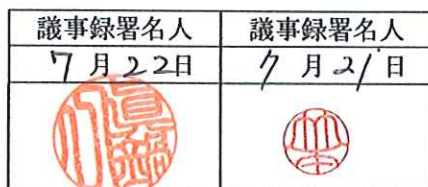 議事録署名人 議事録署名人
7月22日 7月21日